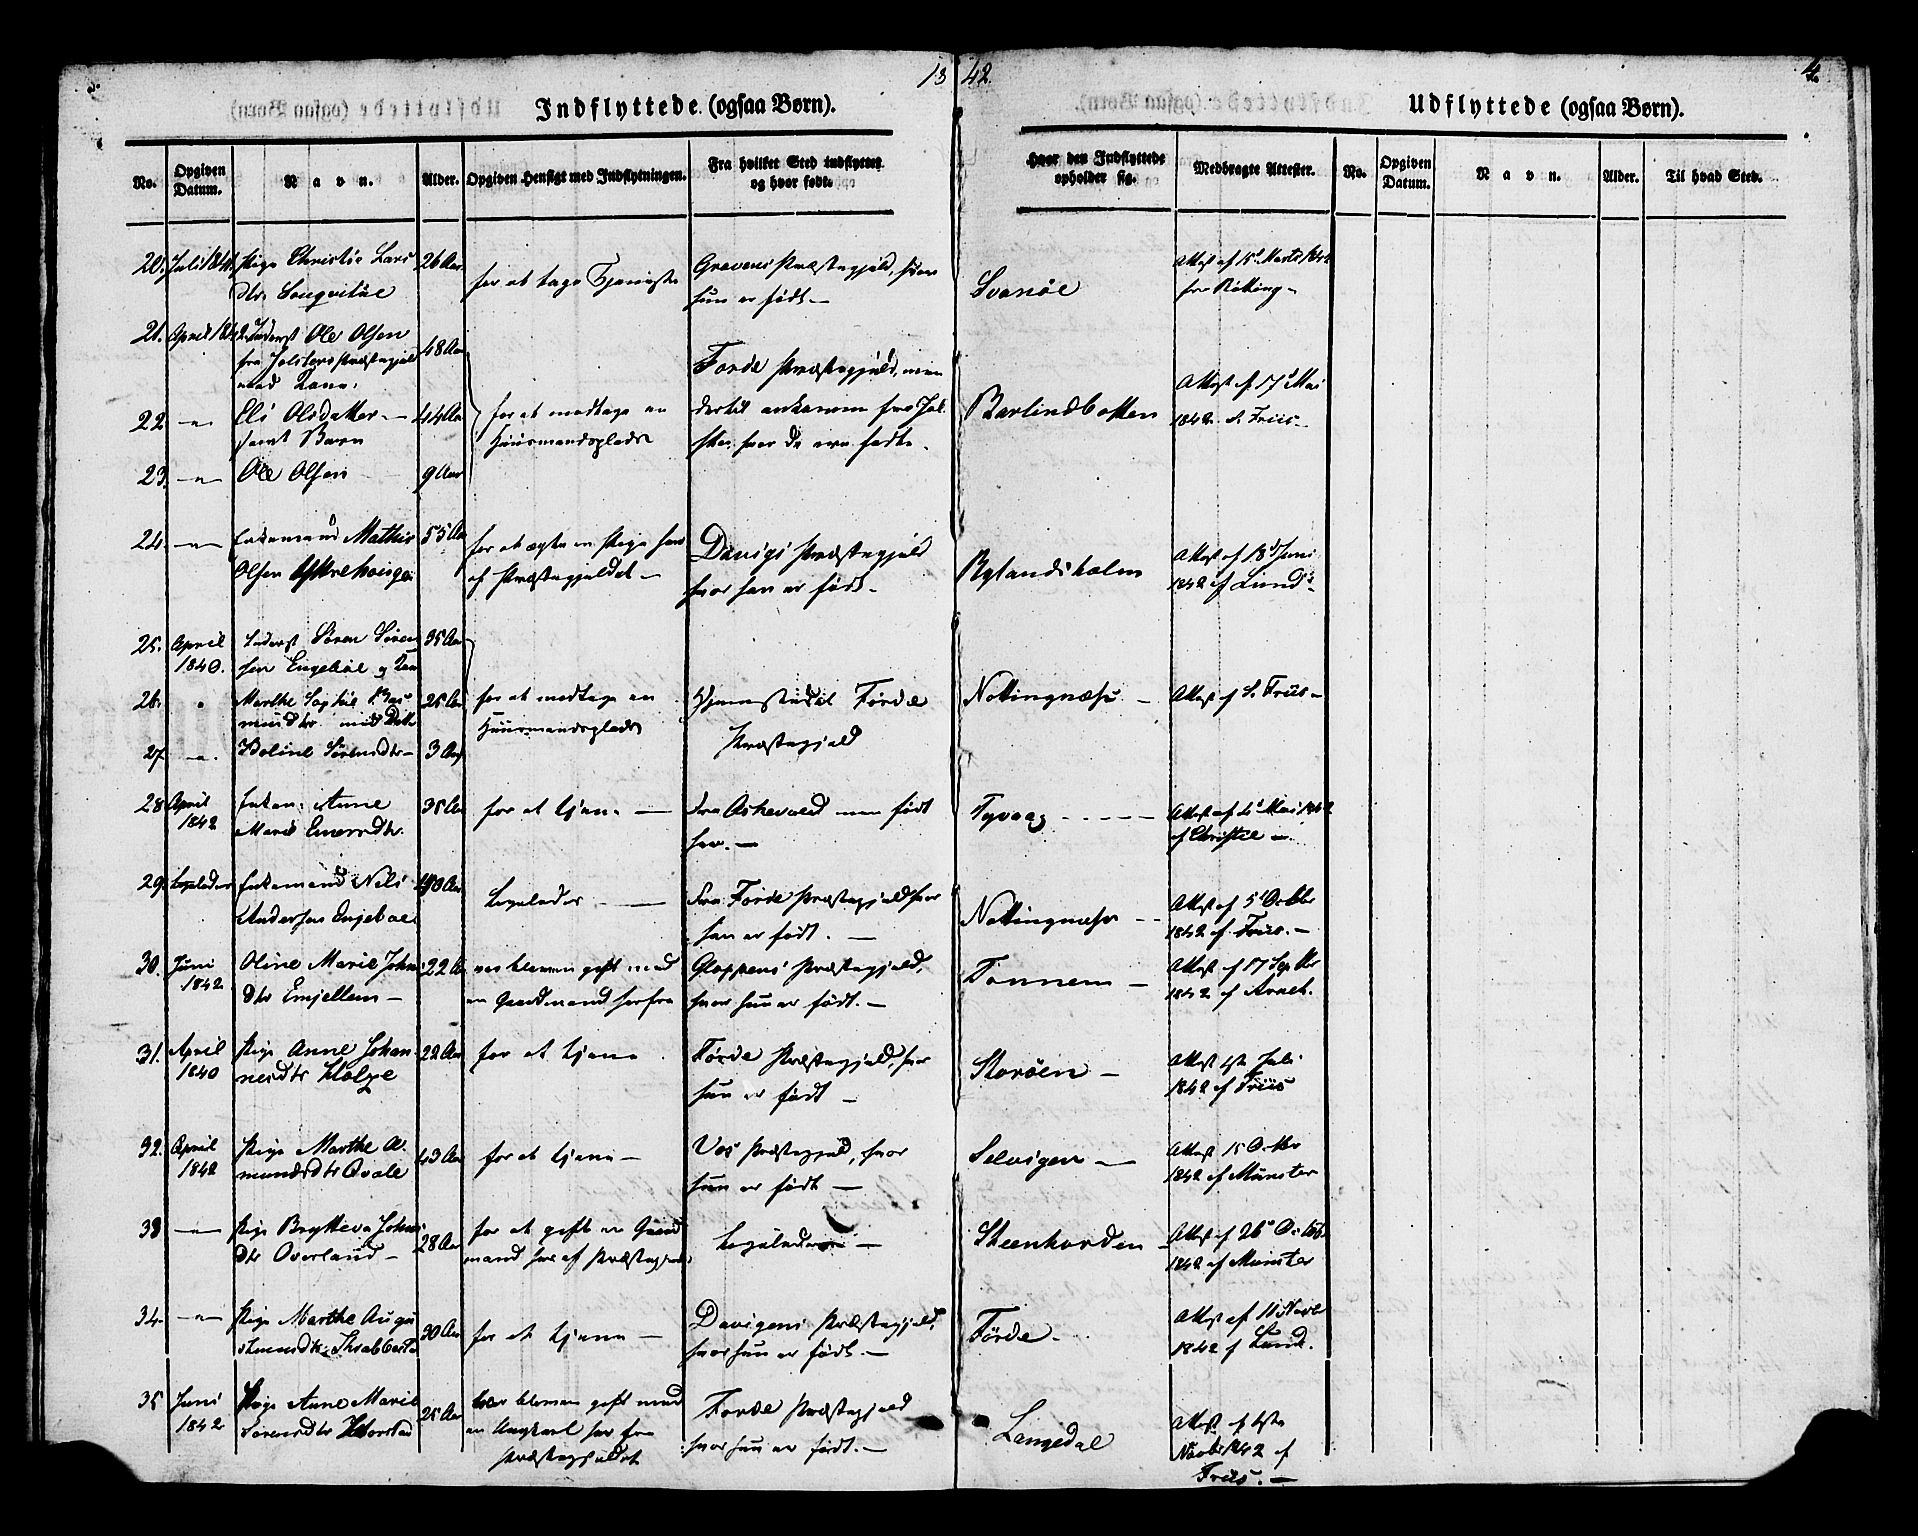 13
42.
4.
Indflyttede (ogsaa Børn).
Udflyttede (ogsaa Børn).
No.
Opgiven Datum.
Navn.
Alder.
Opgiven Hensigt med Indflytningen.
Fra hvilket Sted indflyttet og hvor født.
Hvor den Indflyttede opholder sig.
Medbragte Attester.
No.
Opgiven Datum.
Navn.
Alder.
Til hvad Sted.
20. Juli 1841. Pige Christie Lars 26 Aar Gravens Præstegjeld, hvor Attest af 15d Marts 1842
dtr. for at tage Tjeneste hun er født — Svanøe fra
21. April 1842. Inderst Ole Olsen 48 Aar
fra Jølsters Præstegjeld Førde Præstegjeld, men Attest af 17d Mai
med Kone.
22 —"— Eli Olsdatter — 44 Aar for at modtage en dertil ankommen fra Jøl- Barlindbotten 1842 af Friis —
samt Barn Huusmandsplads ster, hvor de ere fødte.
23. —"— Ole Olsen 9 Aar
24. —"— Enkemand Mathis 55 Aar for at ægte en Pige her Davigs Præstegjeld Rylandsholm Attest af 18d Juni
Olsen af Præstegjeldet — hvor han er født — 1842 af Lund —
25. April Inderst Søren Søren 35 Aar
1840. sen Engebøe og Kone
26. " Marthe Sophie Ras 25 Aar for at modtage en Hjemstedet Førde Nottingnæsse — Attest af S. Friis —
musdtr med Datter Huusmandsplads Præstegjeld
27 —"— Boline Sørensdtr — 3 Aar
28 April Enken Anne 35 Aar for at tjene — Fra Askevold men født Tyvaag - - - - Attest af 2d Mai 1842
1842 Marie her. — af Christie —
29. Ligeledes Enkemand Nils 40 Aar Ligeledes — Fra Førde Præstegjeld hvor Nottingnæsse - - Attest af 5d Octbr
Andersen Engeboe han er født. — 1842 af Friis. —
30. Juni Oline Marie Johns 22 Aar var bleven gift med Gloppens Præstegjeld, Tonnem — Attest af 17 Septbr
1842 dtr Emjellem — en Gaardmand herfra hvor hun er født. — 1842 af
31. April Pige Anne Johan 22 Aar for at tjene Førde Præstegjeld, hvor Storøen — Attest 4de Juli
1840 nesdtr hun er født — 1842 af Friis
32. April Pige Marthe A. 43 Aar for at tjene — Vos Præstegjeld, hvor Selvigen — Attest 15 Octbr
1842 mundsdtr Qvale hun er født — 1842 af Münster
33 —"— Pige Brytteva Johns 28 Aar for at gifte en Gaard Ligeledes — Steenhovden — Attest af 26d Octobr
dtr Overland — mand her af Præstegjeld 1842 af Münster
34. —"— Pige Marthe Augu 30 Aar for at tjene — Davigens Præstegjeld, Førde — Attest af 11 Novbr
stinusdtr. hvor hun er født — 1842 af Lund.
35 Juni Pige Anne Marie 25 Aar var bleven gift med Førde Præstegjeld Langedal Attest af 4de
1842 Sørensdtr en Ungkarl her fra hvor hun er født. — Novbr 1842 af
Præstegjeldet Friis. —